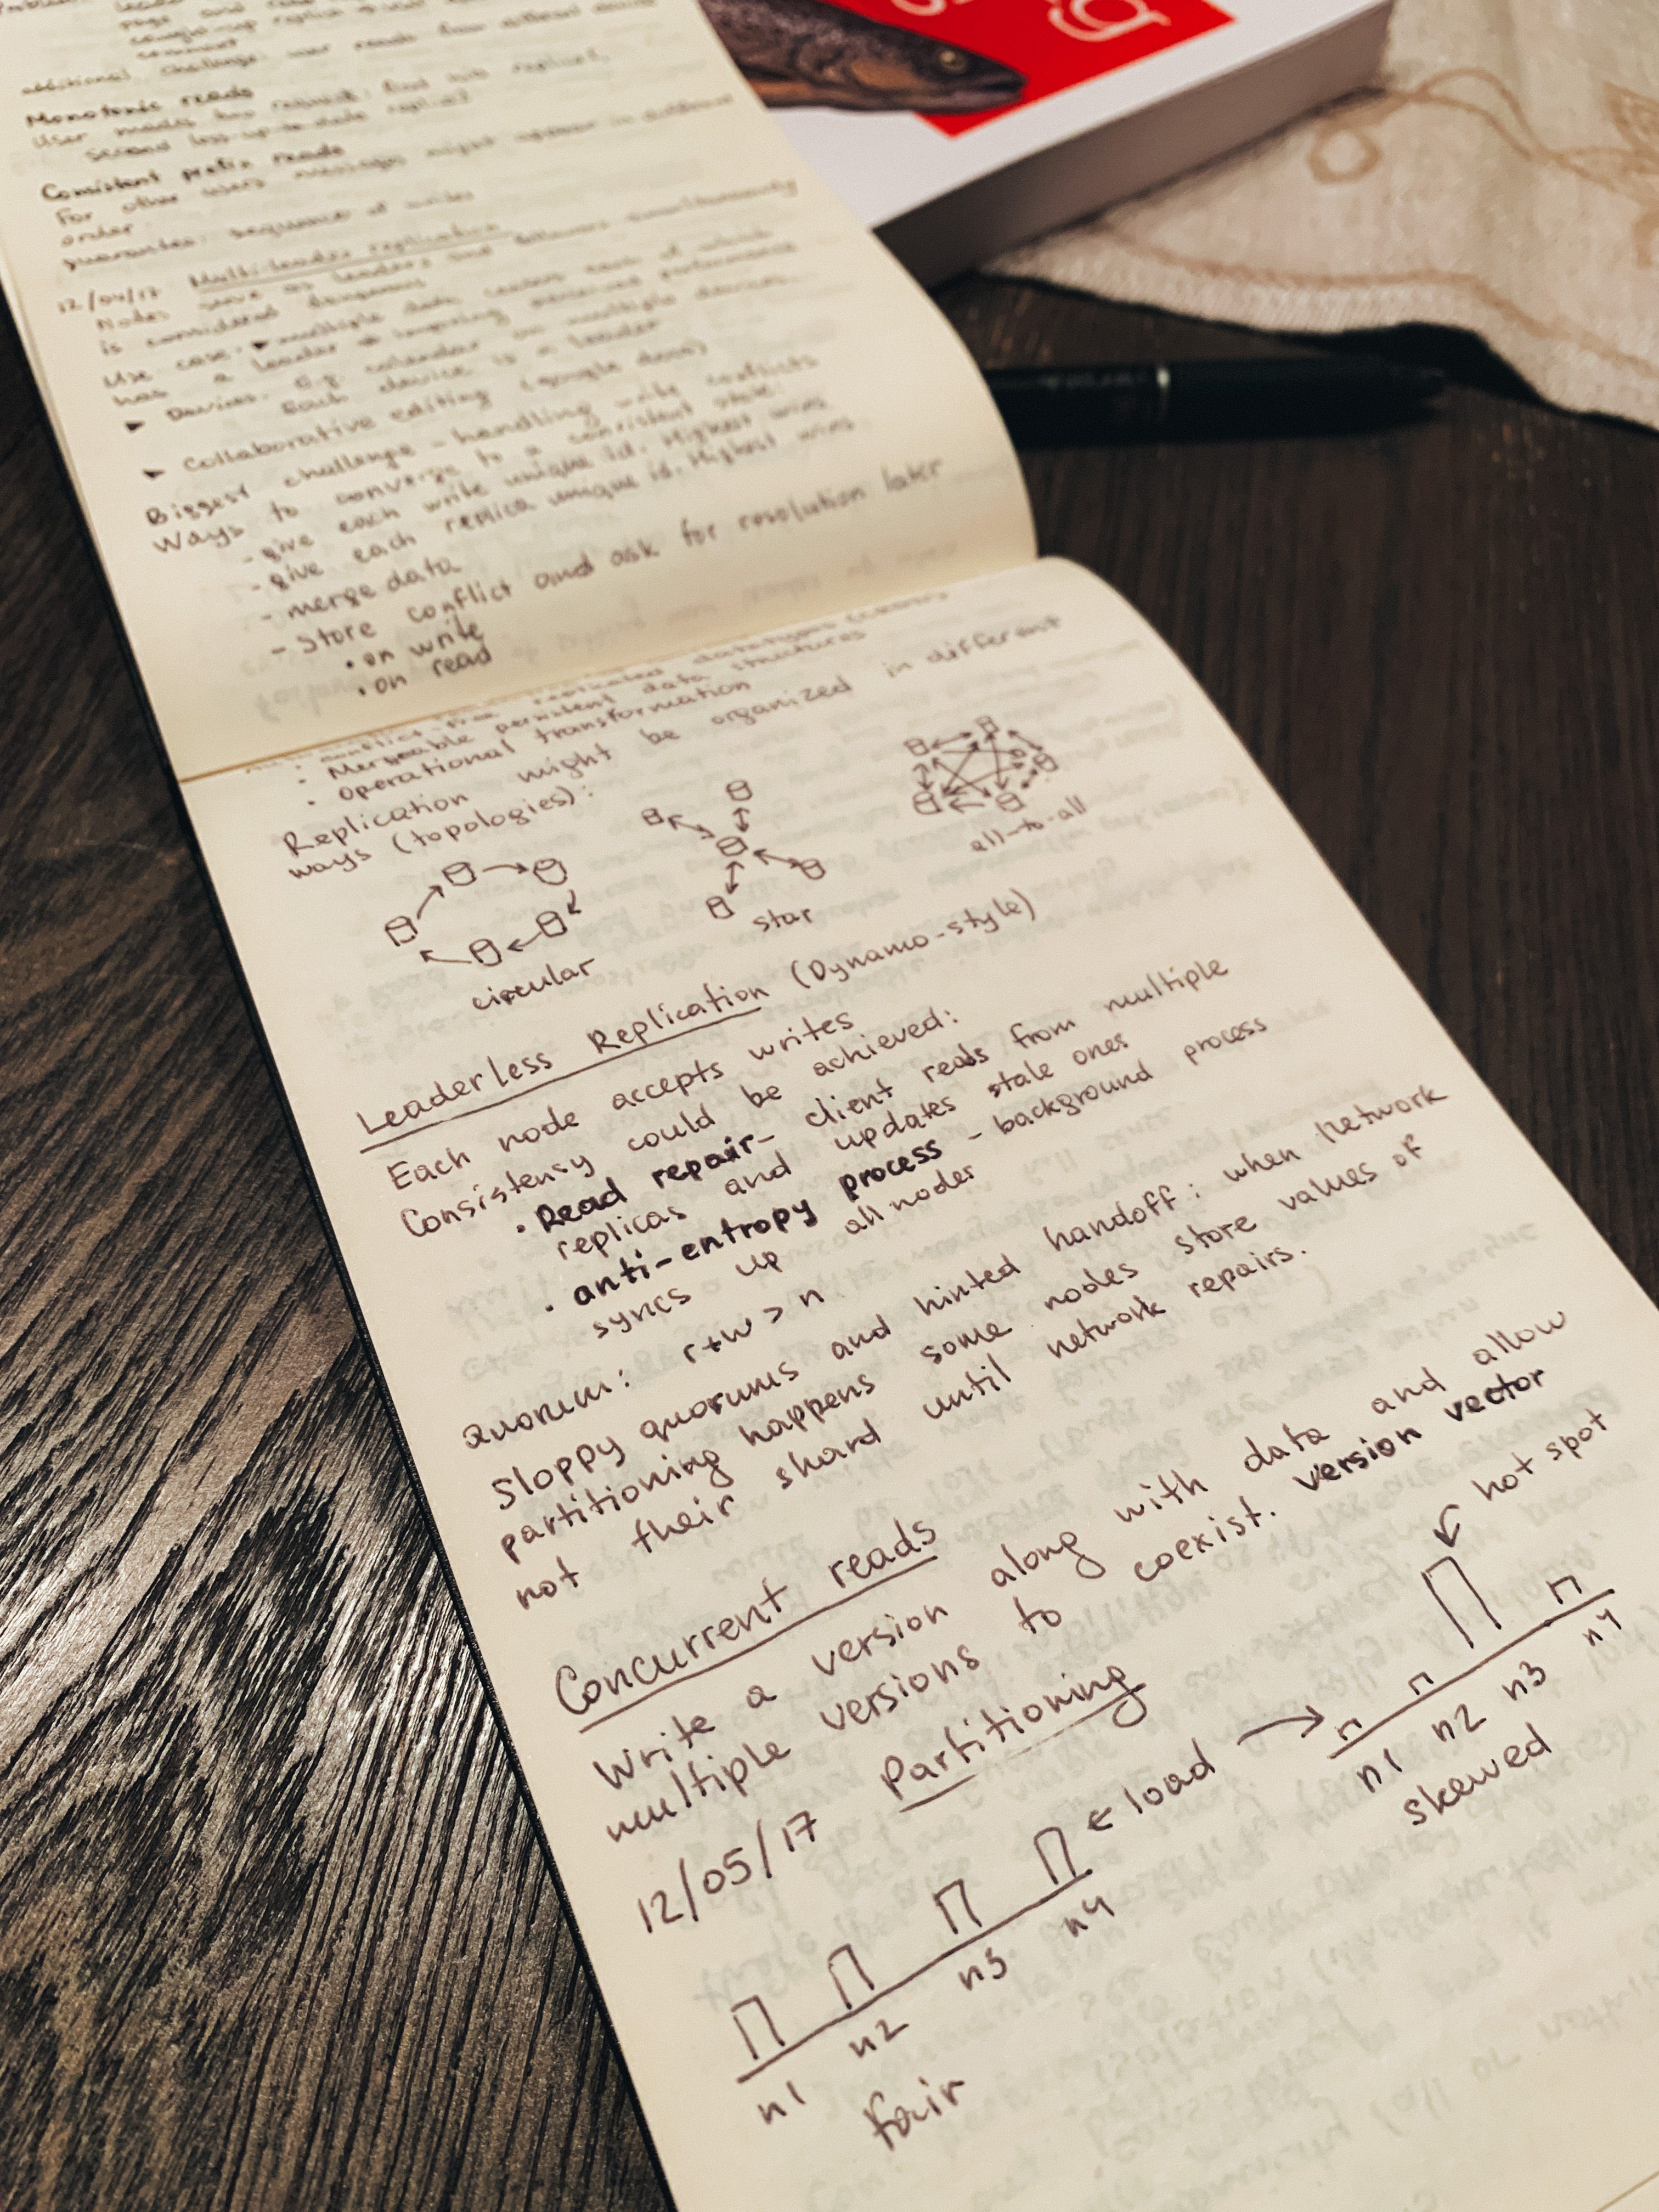 additional challenge: user reads from different
Monotonic reads
User makes two
second less-up-to-date replica
Consistent prefix reads
For other users messages might appear in different
order.
guarantee: sequence of writes
12/04/17 Multi-leader replication
Nodes serve as leaders and followers simultaneously
is considered dangerous
Use case: ▶ multiple data centers each of which
has a leader → improving perceived performance
▶ Devices. E.g. calendar on multiple devices.
Each device is a leader
▶ Collaborative editing (google docs)
Biggest challenge - handling write conflicts
Ways to converge to a consistent state:
- give each write unique id. Highest wins
- give each replica unique id. Highest wins
- merge data
- Store conflict and ask for resolution later
• on write
• on read
• conflict-free replicated datatypes
• Mergeable persistent data structures
• operational transformation
Replication might be organized in different
ways (topologies):
circular
star
all-to-all
Leaderless Replication (Dynamo-style)
Each node accepts writes
Consistency could be achieved:
• Read repair - client reads from multiple
replicas and updates stale ones
• anti-entropy process - background process
syncs up all nodes
Quorum: r+w > n
Sloppy quorums and hinted handoff: when network
partitioning happens some nodes store values of
not their shard until network repairs.
Concurrent reads
Write a version along with data and allow
multiple versions to coexist. version vector
12/05/17 Partitioning
← load →
hot spot
n1 n2 n3 n4
skewed
n1 n2 n3 n4
fair